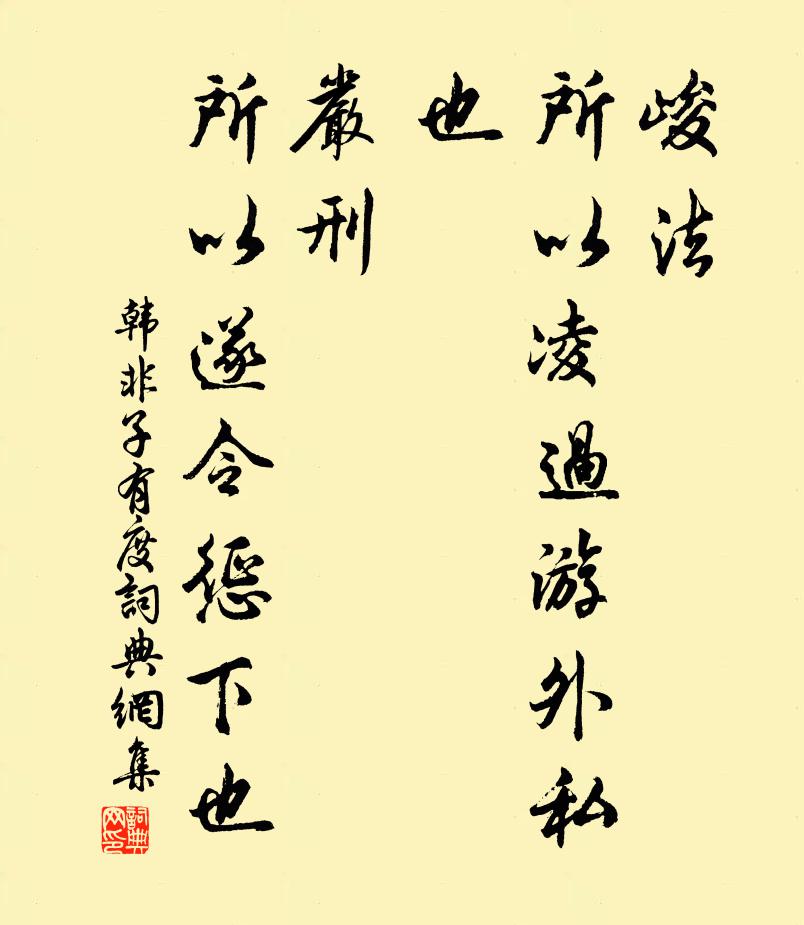 峻法
所以凌過游外私
也
嚴刑
所以遂令懲下也
韩非子有度詞典網集
詞典網印